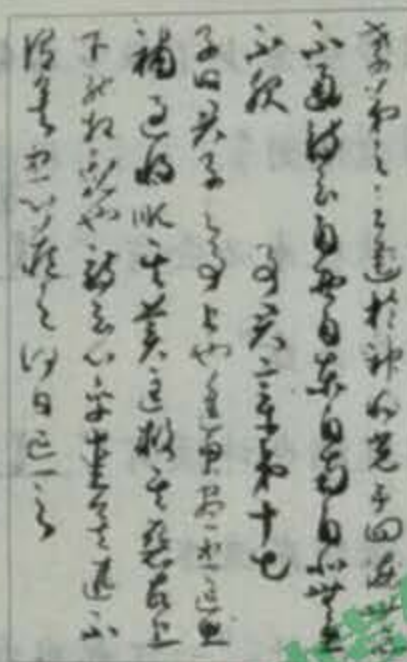 孝弟之至通於神明光于四海無所
不通詩云自西自東自南自北無思
不服 事君章第十七
子曰君子之事上也進思盡忠退思
補過將順其美匡救其惡故上
下能相親也詩云心乎愛矣遐不
謂矣忠心藏之何日忘之